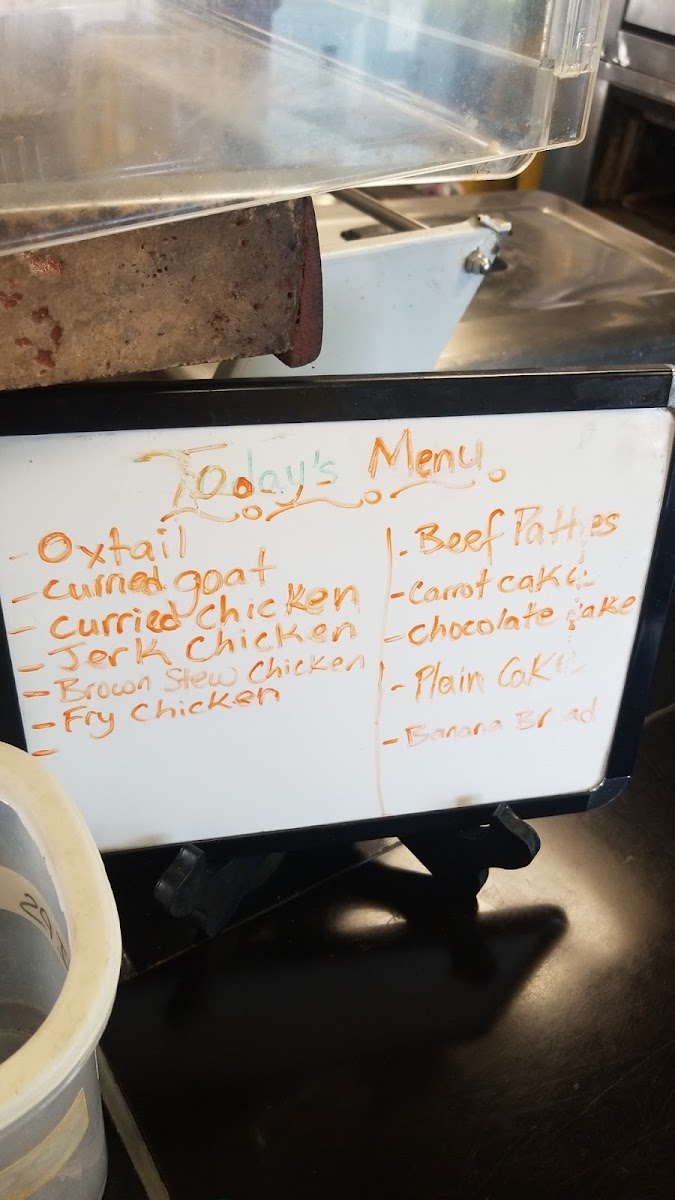 Today's Menu
- Oxtail
- Curried goat
- Curried Chicken
- Jerk Chicken
- Brown Stew Chicken
- Fry Chicken
-
- Beef Patties
- Carrot cake
- Chocolate Cake
- Plain Cake
- Banana Bread